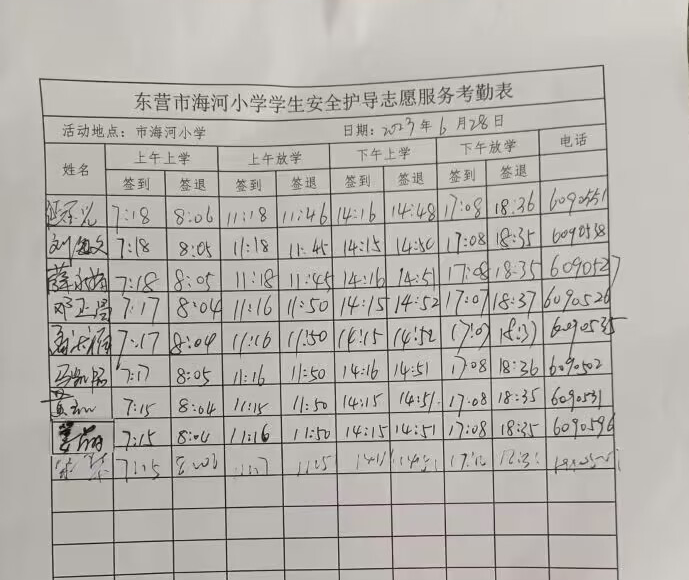 东营市海河小学学生安全护导志愿服务考勤表
活动地点：市海河小学 日期：2023年6月28日
姓名 上午上学 上午放学 下午上学 下午放学 电话
签到 签退 签到 签退 签到 签退 签到 签退
7:18 8:06 11:18 11:46 14:16 14:48 17:08 18:36 6090551
7:18 8:05 11:18 11:45 14:15 14:50 17:08 18:35 6090538
7:18 8:05 11:18 11:45 14:16 14:51 17:08 18:35 6090527
邓卫昌 7:17 8:04 11:16 11:50 14:15 14:52 17:07 18:37 6090526
7:17 8:04 11:16 11:50 14:15 14:52 17:07 18:37 6090535
7:17 8:05 11:16 11:50 14:16 14:51 17:08 18:36 6090502
7:15 8:04 11:15 11:50 14:15 14:51 17:08 18:35 6090531
7:15 8:04 11:16 11:50 14:15 14:51 17:08 18:35 6090596
7:15